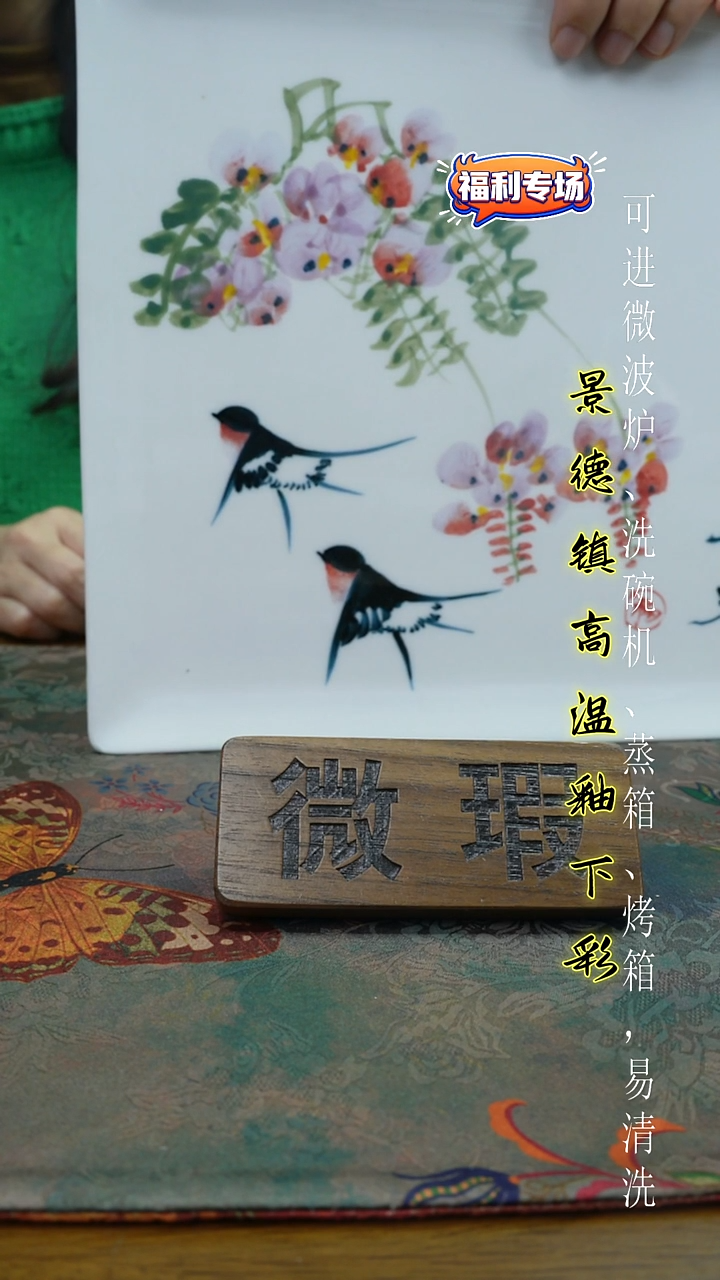 福利专场
可进微波炉、洗碗机、蒸箱、烤箱,易清洗
景德镇高温釉下彩
微瑕